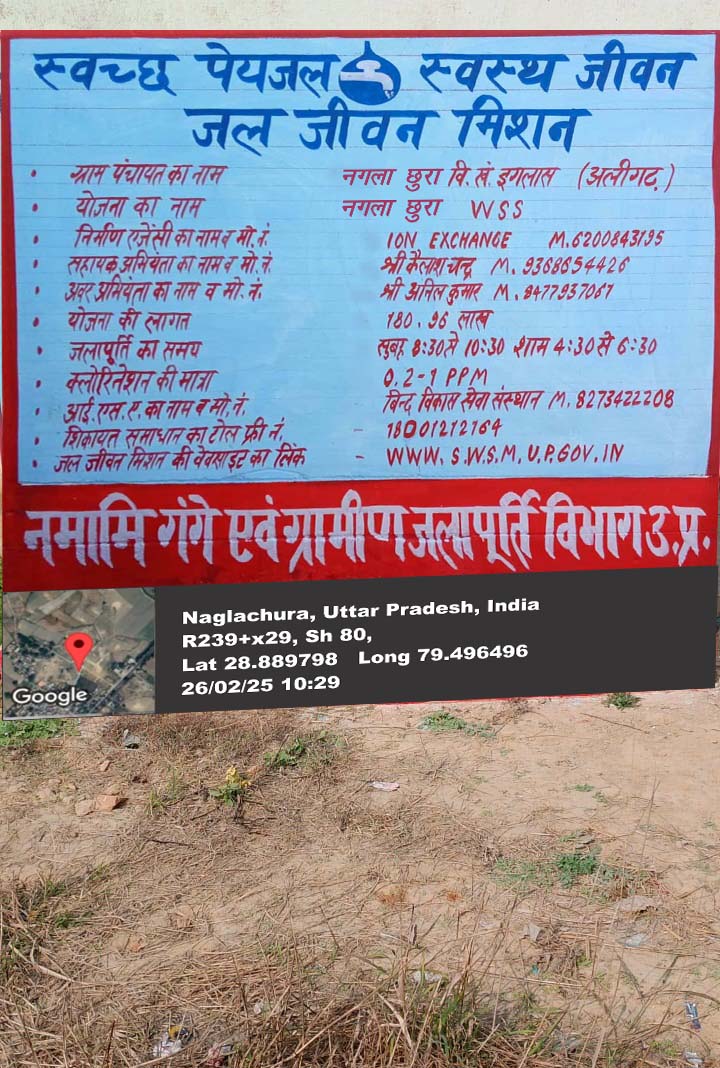 स्वच्छ पेयजल स्वस्थ जीवन
जल जीवन मिशन
• ग्राम पंचायत का नाम नगला छुरा वि. खं. इगलास (अलीगढ़)
• योजना का नाम नगला छुरा WSS
• निर्माण एजेंसी का नाम व मो. नं. ION EXCHANGE M. 6200843195
• सहायक अभियंता का नाम व मो. नं. श्री कैलाश चन्द्र M. 9368654426
• अवर अभियंता का नाम व मो. नं. श्री अनिल कुमार M. 8477937067
• योजना की लागत 180.96 लाख
• जलापूर्ति का समय सुबह 8:30 से 10:30 शाम 4:30 से 6:30
• क्लोरिनेशन की मात्रा 0.2-1 PPM
• आई. एस. ए. का नाम व मो. नं. बिन्द विकास सेवा संस्थान M. 8273422208
• शिकायत समाधान का टोल फ्री नं. - 18001212164
• जल जीवन मिशन की वेवसाइट का लिंक - WWW.SWSM.UP.GOV.IN
नमामि गंगे एवं ग्रामीण जलापूर्ति विभाग उ.प्र.
Naglachura, Uttar Pradesh, India
R239+x29, Sh 80,
Lat 28.889798 Long 79.496496
26/02/25 10:29
Google